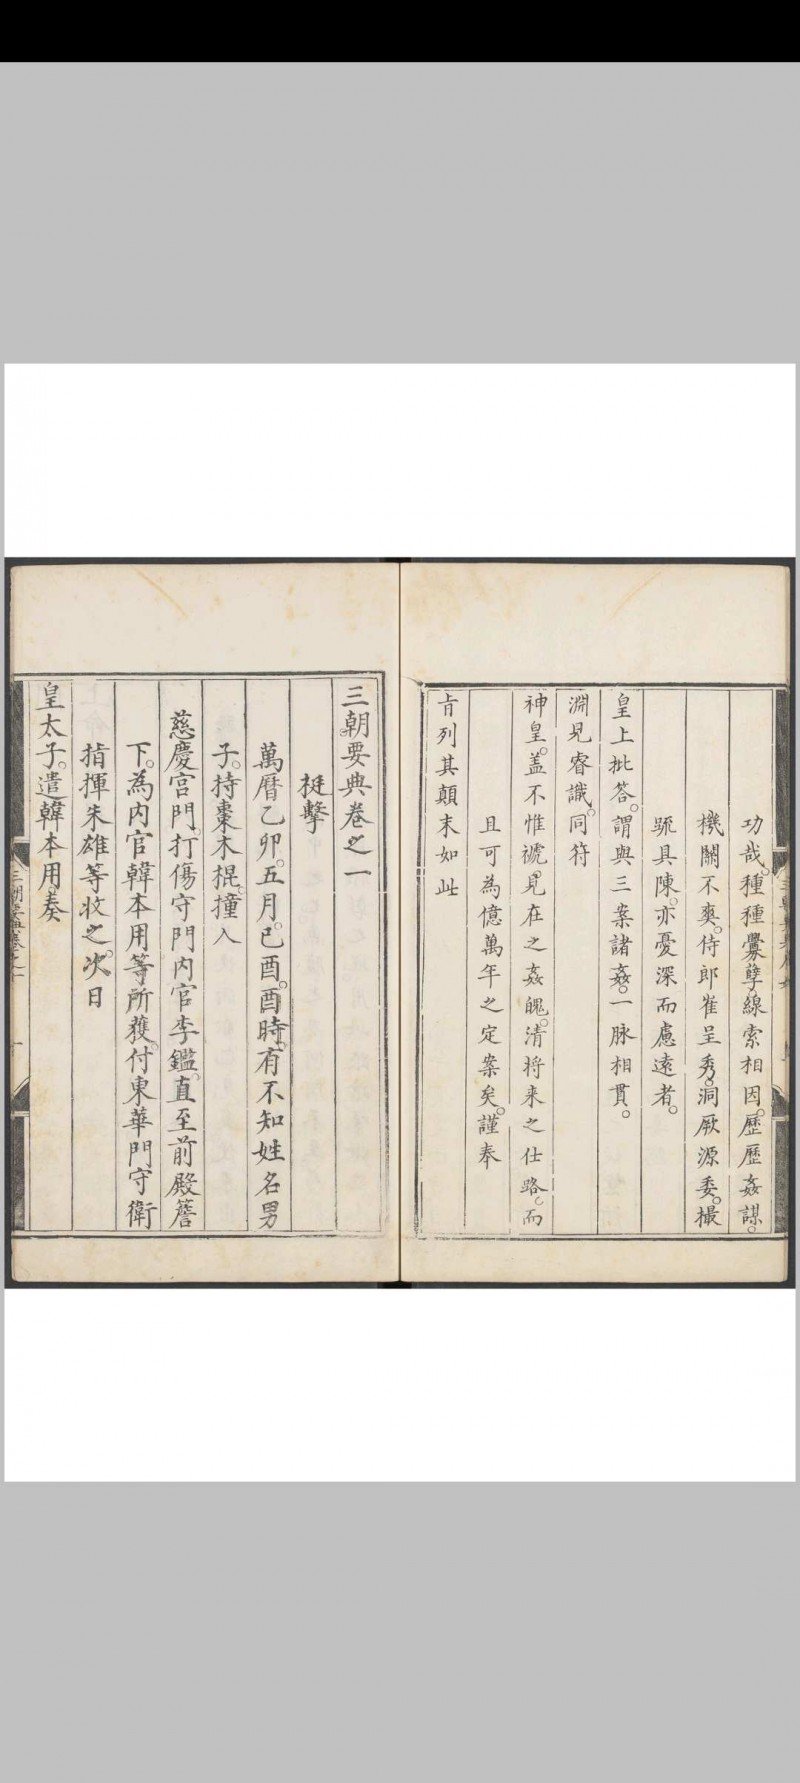 功哉。種種釁孽線索相因。歷歷姦謀。
機關不爽。侍郎崔呈秀。洞厥源委。撮
疏具陳。亦憂深而慮遠者。
皇上批答。謂與三案諸姦。一脉相貫。
淵見睿識。同符
神皇。蓋不惟褫見在之姦魄。清將來之仕路。而
且可為億萬年之定案矣。謹奉
旨列其顛末如此
三朝要典卷之一
梃擊
萬曆乙卯。五月。己酉。酉時。有不知姓名男
子。持棗木棍。撞入
慈慶宮門。打傷守門內官李鑑。直至前殿簷
下。為內官韓本用等所獲。付東華門守衛
指揮朱雄等收之。次日
皇太子。遣韓本用。奏